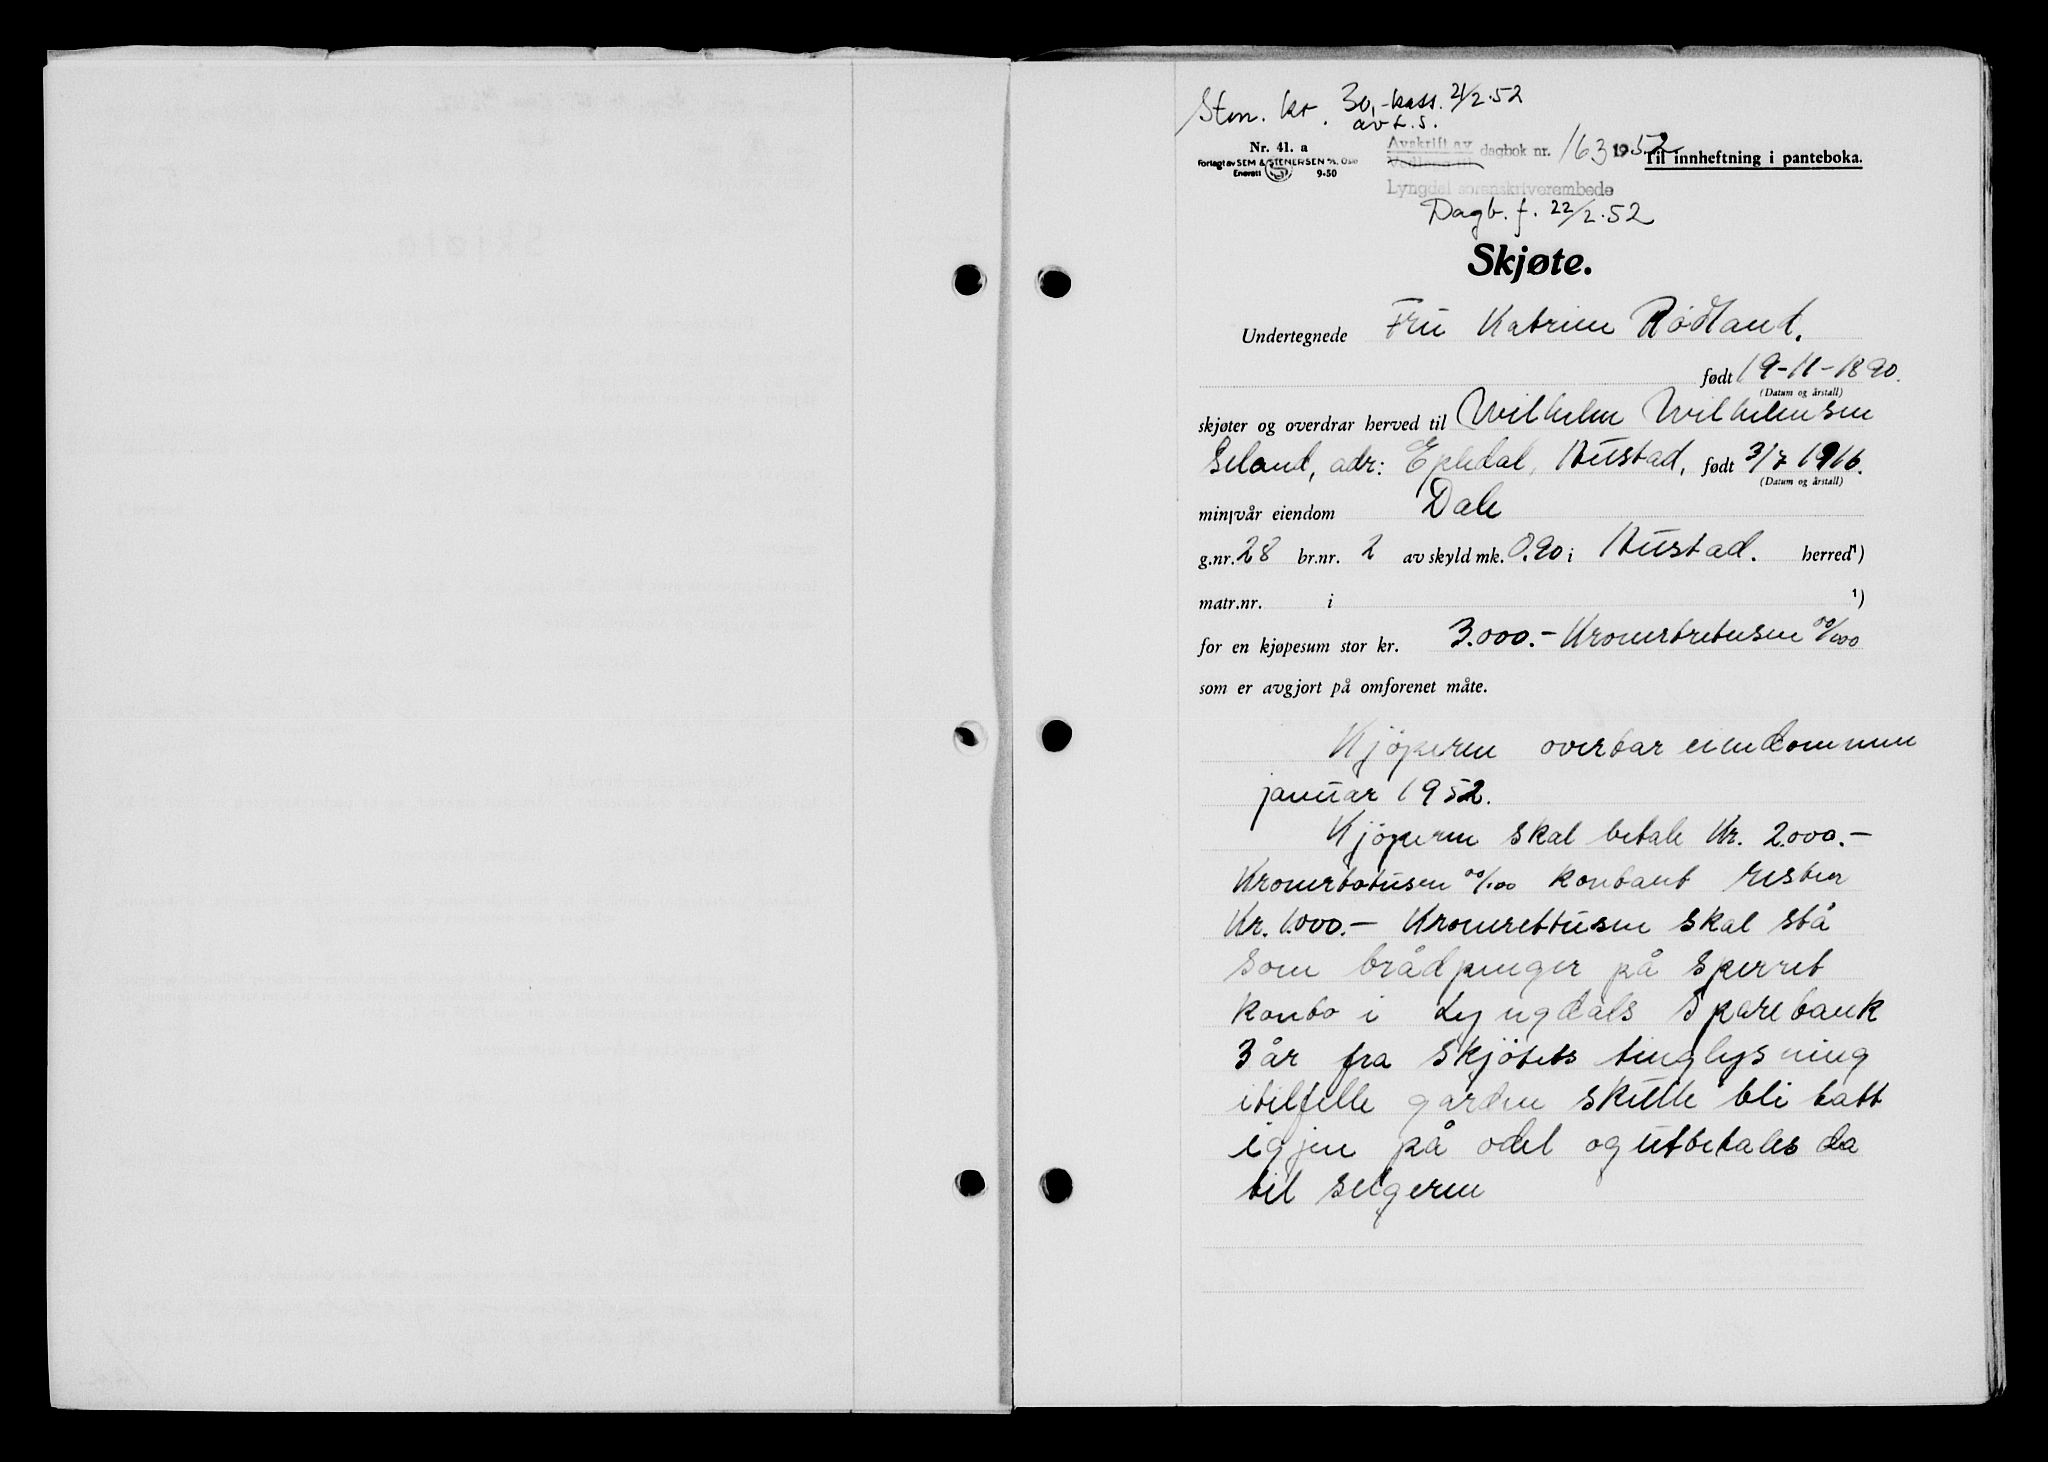 Stm. kr. 30,- kass. 21/2.52
av L.S.
Nr. 41. a
Forlagt av SEM & STENERSEN A/S, Oslo
Enerett 9-50
Avskrift av
Vedlegg til
dagbok nr. 163 1952
Til innheftning i panteboka.
Lyngdal sorenskriverembede
Dagb. f. 22/2.52
Skjøte.
Undertegnede Frü Katrine Rödland.
født 19-11-1890.
(Datum og årstall)
skjøter og overdrar herved til Wilhelm Wilhelmsen
Seland, adr: Epledal, Küstad, født 3/7 1916.
(Datum og årstall)
min/vår eiendom Dale
g.nr. 28 br.nr. 2 av skyld mk. 0.90 i Küstad. herred¹)
matr.nr. i ¹)
for en kjøpesum stor kr. 3.000.- Kronertretusen 00/000
som er avgjort på omforenet måte.
Kjöperen overtar eiendommen
janüar 1952.
Kjöperen skal betale Kr. 2.000.-
Kronertotusen 00/100 kontant resten
Kr. 1.000.- Kronerettüsen skal stå
som brådpenger på sperret
konto i Lyngdals Sparebank
3 år fra skjötets tinglysning
itilfelle garden skülle bli tatt
igjen på odel og ütbetales da
til selgeren